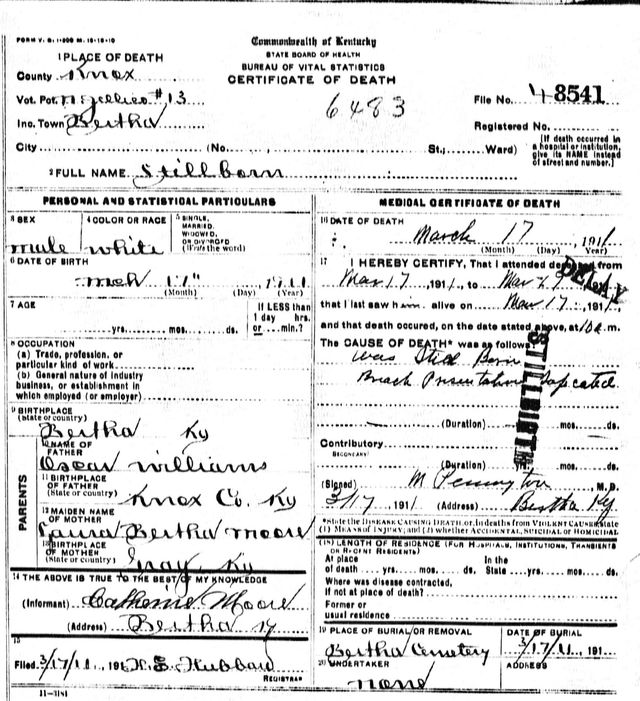 FORM V. S. 1-
Commonwealth of Kentucky
STATE BOARD OF HEALTH
BUREAU OF VITAL STATISTICS
CERTIFICATE OF DEATH
1 PLACE OF DEATH
County Knox
Vot. Pct. #13
Inc. Town Bertha
City (No. St.; Ward)
6483
File No. 8541
Registered No.
(If death occurred in a hospital or institution, give its NAME instead of street and number.)
2 FULL NAME Stillborn
PERSONAL AND STATISTICAL PARTICULARS
3 SEX
male
4 COLOR OR RACE
white
5 SINGLE, MARRIED, WIDOWED, OR DIVORCED
(Write the word)
6 DATE OF BIRTH
Mch 17" 1911
(Month) (Day) (Year)
7 AGE
If LESS than 1 day hrs. or min.?
yrs. mos. ds.
8 OCCUPATION
(a) Trade, profession, or particular kind of work
(b) General nature of industry business, or establishment in which employed (or employer)
9 BIRTHPLACE
(State or country)
Bertha Ky
PARENTS
10 NAME OF FATHER
Oscar Williams
11 BIRTHPLACE OF FATHER
(State or country)
Knox Co. Ky
12 MAIDEN NAME OF MOTHER
Laura Bertha Moore
13 BIRTHPLACE OF MOTHER
(State or country)
Gray Ky
14 THE ABOVE IS TRUE TO THE BEST OF MY KNOWLEDGE
(Informant) Catherine Moore
(Address) Bertha Ky
15
Filed 3/17/11, 191
REGISTRAR
11-3181
MEDICAL CERTIFICATE OF DEATH
16 DATE OF DEATH
March 17, 1911
(Month) (Day) (Year)
17 I HEREBY CERTIFY, That I attended deceased from
Mar 17 1911, to Mar 17 1911,
that I last saw him alive on Mar 17 1911,
and that death occured, on the date stated above, at 10 a.m.
The CAUSE OF DEATH* was as follows:
Was Still Born
Breach Presentation
STILLBIRTH
DELAY
(Duration) yrs. mos. ds.
Contributory
SECONDARY
(Duration) yrs. mos. ds.
(Signed) M Pennington, M.D.
3/17 1911 (Address) Bertha Ky
*State the DISEASE CAUSING DEATH, or, in deaths from VIOLENT CAUSES, state
(1) MEANS OF INJURY; and (2) whether ACCIDENTAL, SUICIDAL or HOMICIDAL
(18) LENGTH OF RESIDENCE (FOR HOSPITALS, INSTITUTIONS, TRANSIENTS OR RECENT RESIDENTS)
At place of death yrs. mos. ds. In the State yrs. mos. ds.
Where was disease contracted,
If not at place of death?
Former or usual residence
19 PLACE OF BURIAL OR REMOVAL
Bertha Cemetery
DATE OF BURIAL
3/17/11, 191
20 UNDERTAKER
none
ADDRESS